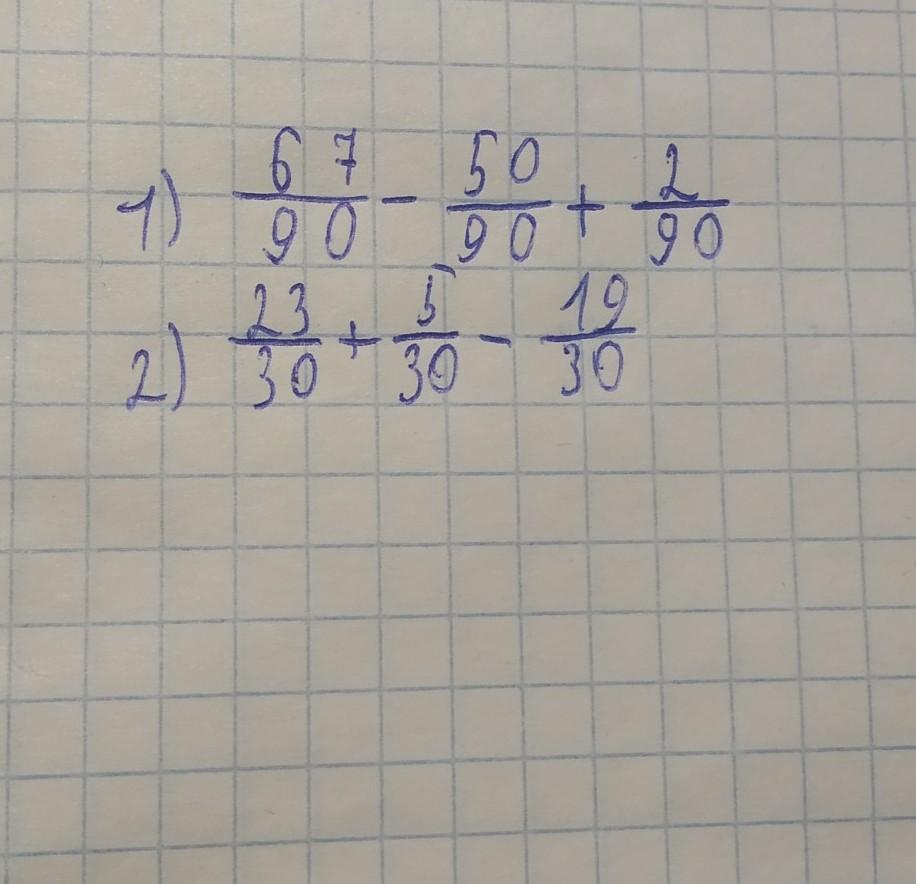 1) 67/90 - 50/90 + 2/90
2) 23/30 + 5/30 - 19/30